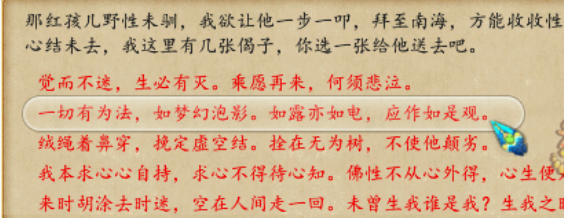 那红孩儿野性未驯，我欲让他一步一叩，拜至南海，方能收收性
心结未去，我这里有几张偈子，你选一张给他送去吧。
觉而不迷，生必有灭。乘愿再来，何须悲泣。
一切有为法，如梦幻泡影。如露亦如电，应作如是观。
绒绳着鼻穿，挽定虚空结。拴在无为树，不使他颠劣。
我本求心心自持，求心不得待心知。佛性不从心外得，心生便
来时胡涂去时迷，空在人间走一回。未曾生我谁是我？生我之